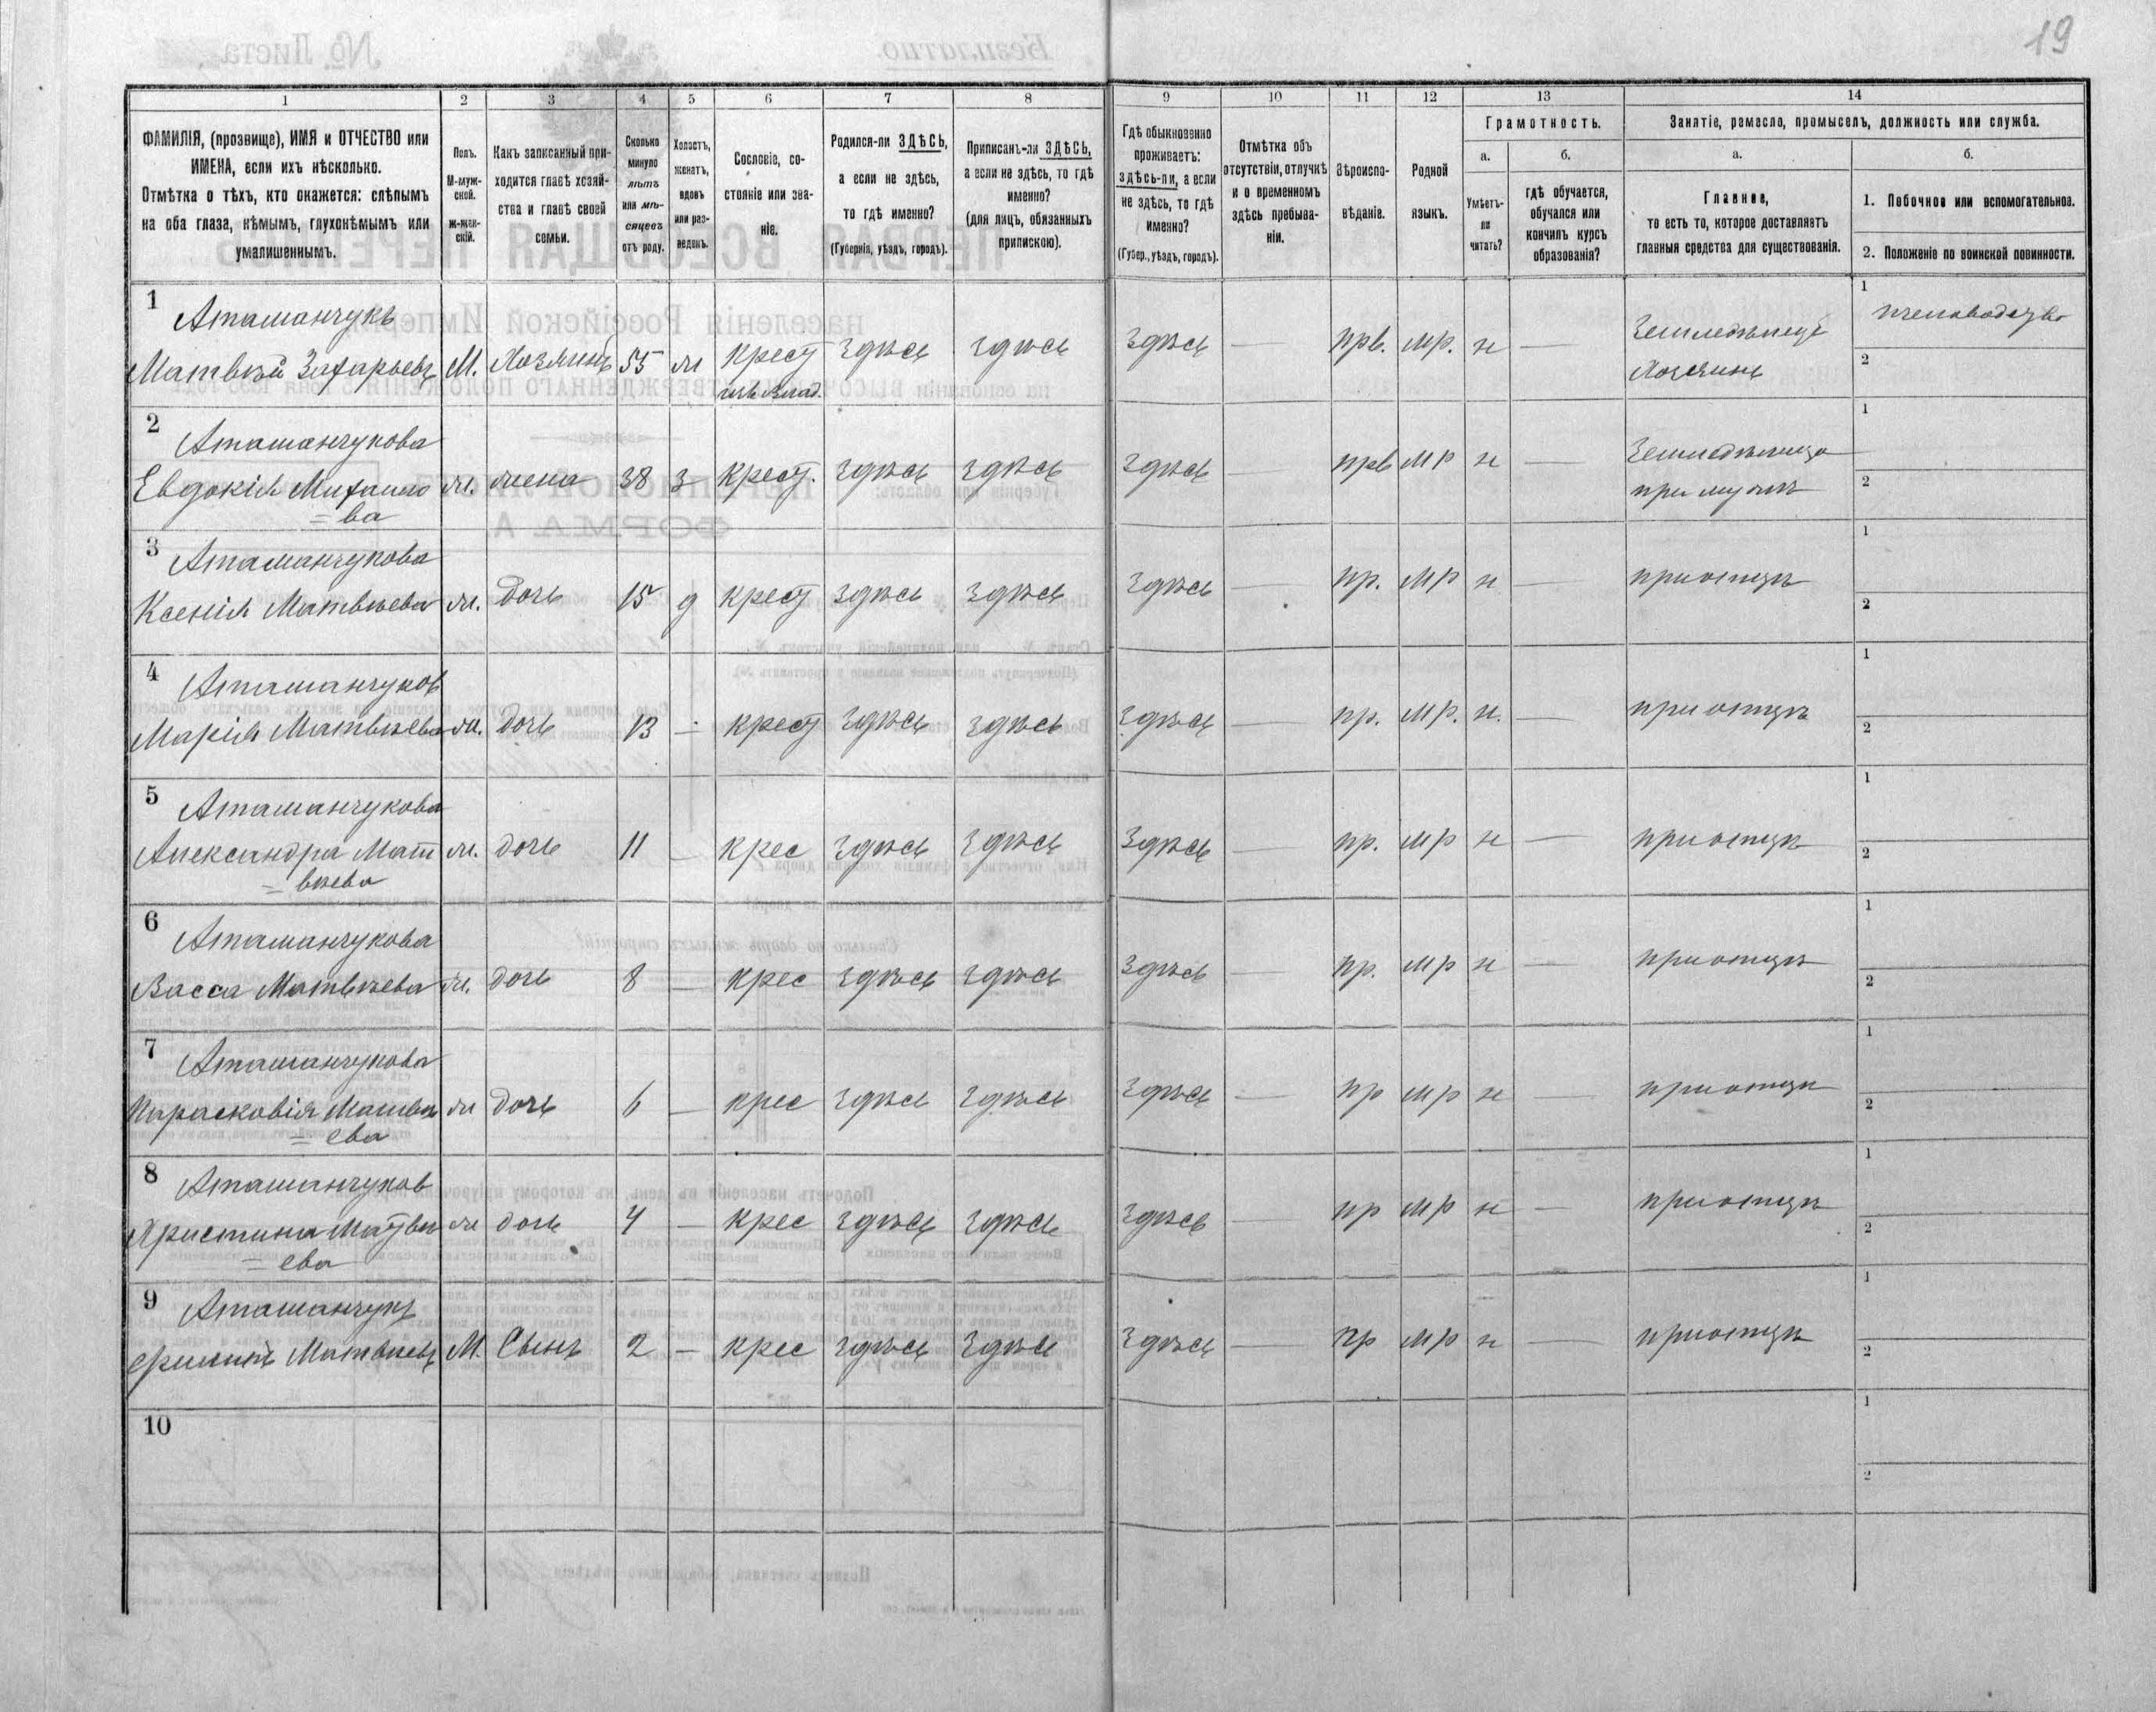 19
1 2 3 4 5 6 7 8 9 10 11 12 13 14
ФАМИЛІЯ, (прозвище), ИМЯ и ОТЧЕСТВО или
ИМЕНА, если ихъ нѣсколько.
Отмѣтка о тѣхъ, кто окажется: слѣпымъ
на оба глаза, нѣмымъ, глухонѣмымъ или
умалишеннымъ.
Полъ.
М-муж-
ской.
ж-жен-
скій.
Какъ записанный при-
ходится главѣ хозяй-
ства и главѣ своей
семьи.
Сколько
минуло
лѣтъ
или мѣ-
сяцевъ
отъ роду.
Холостъ,
женатъ,
вдовъ
или раз-
веденъ.
Сословіе, со-
стояніе или зва-
ніе.
Родился-ли ЗДѢСЬ,
а если не здѣсь,
то гдѣ именно?
(Губернія, уѣздъ, городъ).
Приписанъ-ли ЗДѢСЬ,
а если не здѣсь, то гдѣ
именно?
(для лицъ, обязанныхъ
припискою).
Гдѣ обыкновенно
проживаетъ:
здѣсь-ли, а если
не здѣсь, то гдѣ
именно?
(Губер., уѣздъ, городъ).
Отмѣтка объ
отсутствіи, отлучкѣ
и о временномъ
здѣсь пребыва-
ніи.
Вѣроиспо-
вѣданіе.
Родной
языкъ.
Грамотность.
а.
Умѣетъ-
ли
читать?
б.
гдѣ обучается,
обучался или
кончилъ курсъ
образованія?
Занятіе, ремесло, промыселъ, должность или служба.
а.
Главное,
то есть то, которое доставляетъ
главныя средства для существованія.
б.
1. Побочное или вспомогательное.
2. Положеніе по воинской повинности.
1 Атаманчукъ
Матвѣй Захарьевъ М. Хозяинъ 55 ж Крест здѣсь здѣсь здѣсь — прв. мр. н — Земледѣлецъ 1 пчеловодство
изъ влад. Хозяинъ 2
2 Атаманчукова
Евдокія Михайло ж. жена 38 з крест. здѣсь здѣсь здѣсь — прв мр н — Земледѣлица 1
= ва при мужѣ 2
3 Атаманчукова
Ксенія Матвѣева ж. дочь 15 д крест здѣсь здѣсь здѣсь — пр. мр н — при отцѣ 1
2
4 Атаманчуков
Марія Матвѣева ж. дочь 13 — крест здѣсь здѣсь здѣсь — пр. мр. н. — при отцѣ 1
2
5 Атаманчукова
Александра Мат ж. дочь 11 — крес здѣсь здѣсь здѣсь — пр. мр н — при отцѣ 1
= вѣева 2
6 Атаманчукова
Васса Матвѣева ж. дочь 8 — крес здѣсь здѣсь здѣсь — пр. мр н — при отцѣ 1
2
7 Атаманчукова
Парасковія Матвѣ ж дочь 6 — крес здѣсь здѣсь здѣсь — пр мр н — при отцѣ 1
= ева 2
8 Атаманчуков
Христина Матвѣ ж дочь 4 — крес здѣсь здѣсь здѣсь — пр мр н — при отцѣ 1
= ева 2
9 Атаманчукъ
Филипъ Матвѣевъ М. Сынъ 2 — крес здѣсь здѣсь здѣсь — пр мр н — при отцѣ 1
2
10 1
2